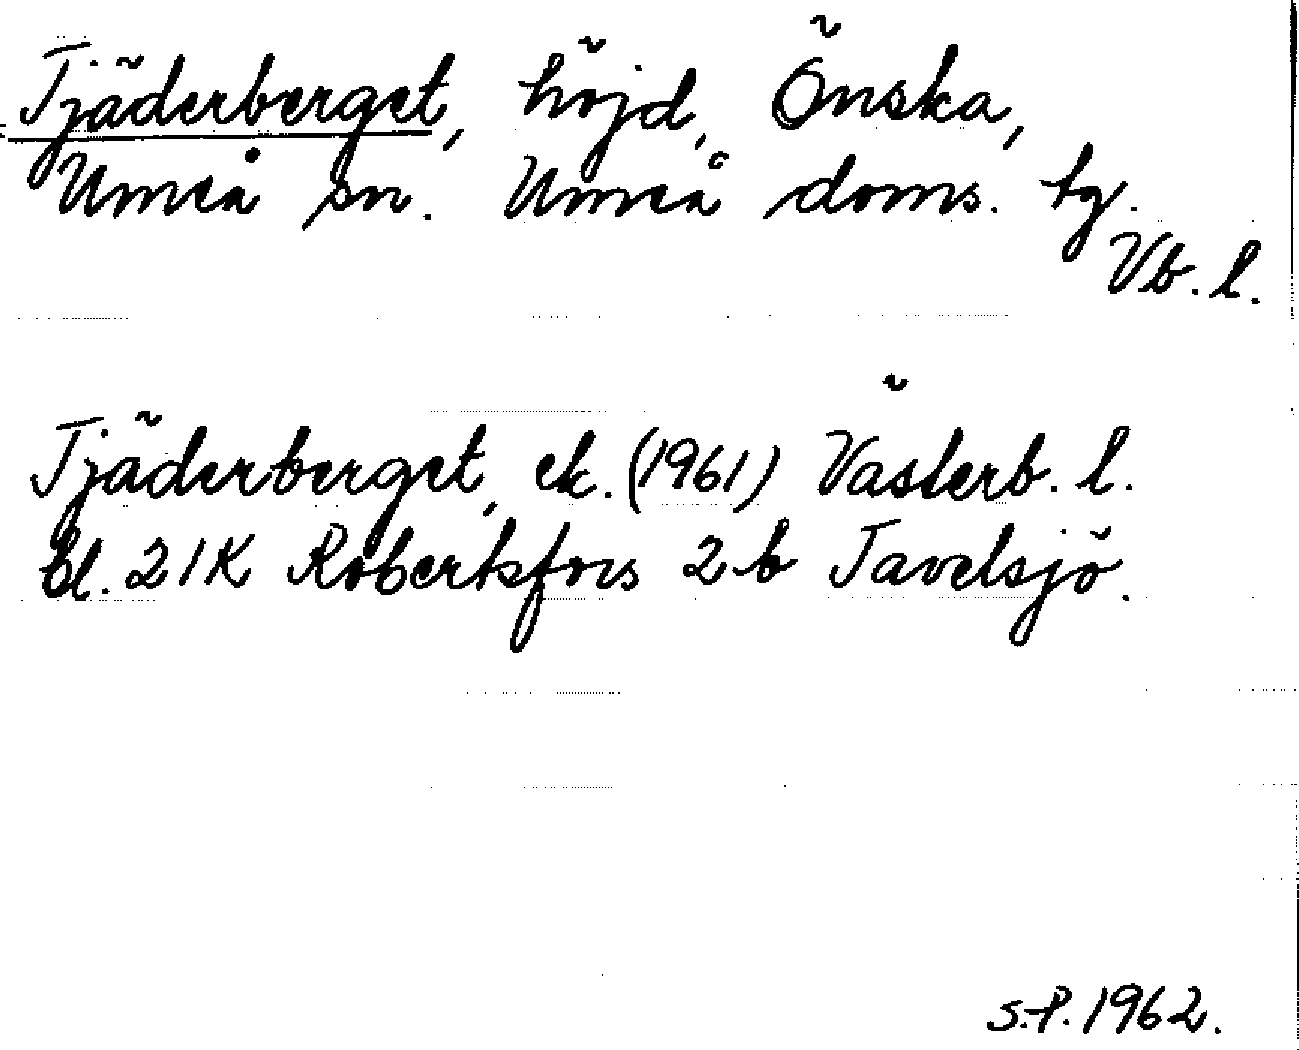 Tjäderberget, höjd, Önska,
Umeå sn. Umeå doms. tg.
Vb. l.
Tjäderberget, ek. (1961) Västerb. l.
bl. 21K Robertsfors 2b Tavelsjö.
S.P. 1962.